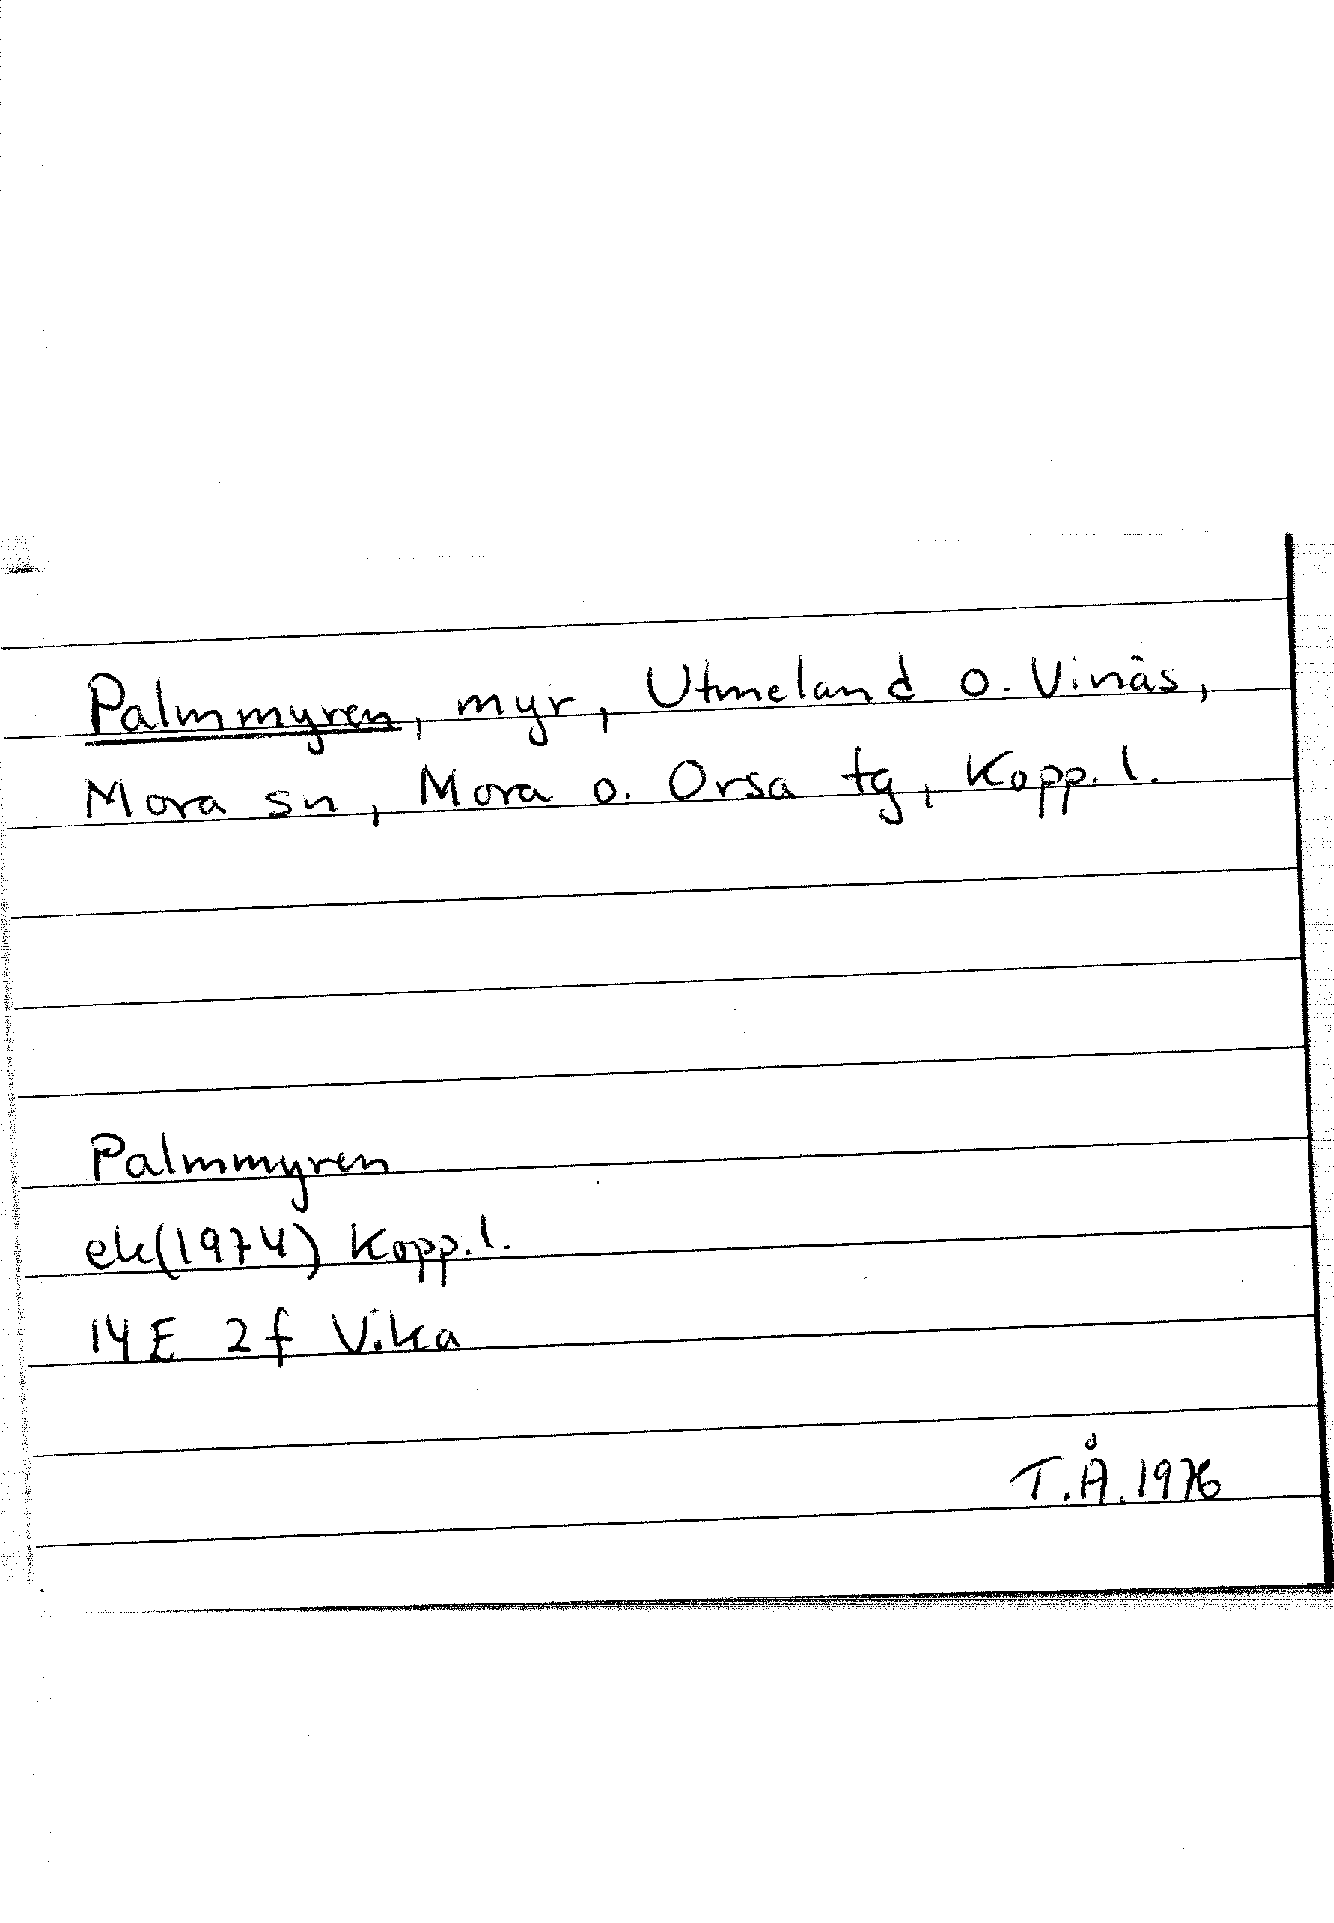 Palmmyren, myr, Utmeland o. Vinäs,
Mora sn, Mora o. Orsa tg, Kopp. l.
Palmmyren
ek(1974) Kopp. l.
14E 2f Vika
T.Å. 1976